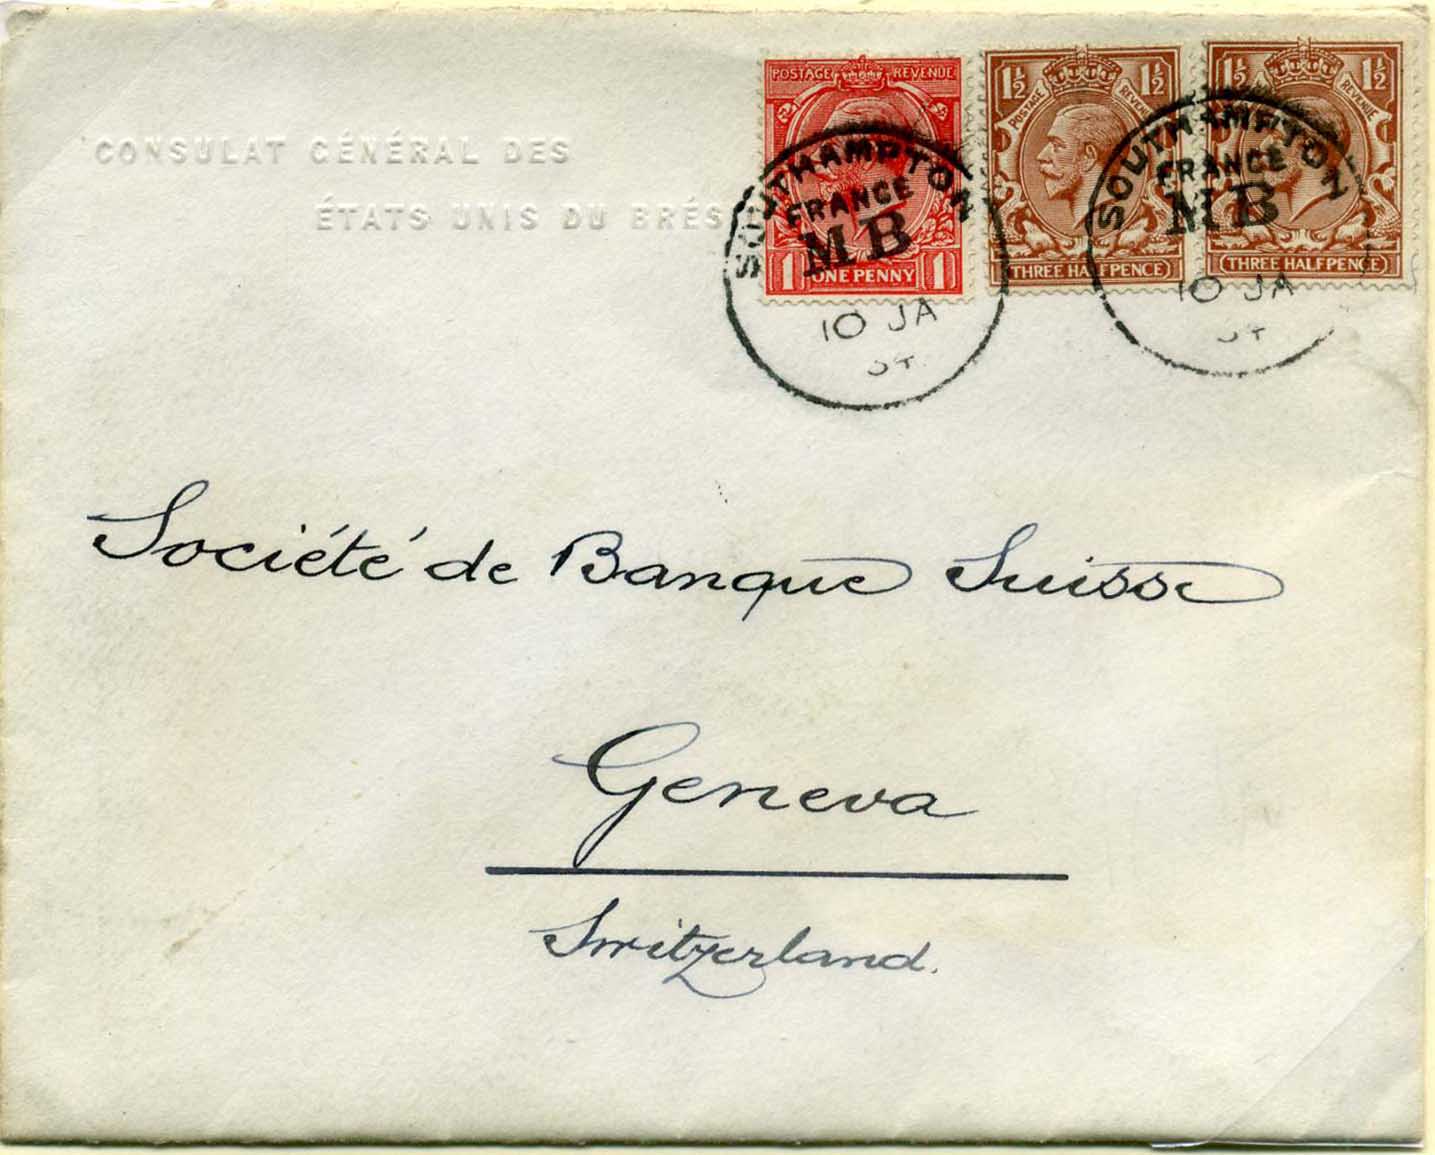 CONSULAT GÉNÉRAL DES
ÉTATS UNIS DU BRÉS
POSTAGE REVENUE
1 ONE PENNY 1
1½ 1½
POSTAGE REVENUE
THREE HALFPENCE
1½ 1½
REVENUE
THREE HALFPENCE
SOUTHAMPTON
FRANCE
MB
10 JA
34
SOUTHAMPTON
FRANCE
MB
10 JA
34
Société de Banque Suisse
Geneva
Switzerland.